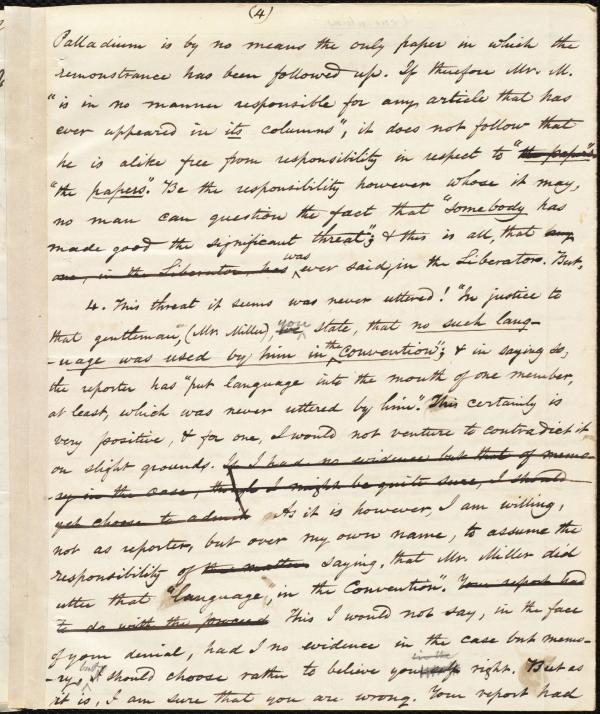 (4)
Palladium is by no means the only paper in which the
remonstrance has been followed up. If therefore Mr. M.
"is in no manner responsible for any article that has
ever appeared in its columns", it does not follow that
he is alike free from responsibility in respect to "the papers".
"the papers". Be the responsibility however whose it may,
no man can question the fact that "somebody has
made good the significant threat"; & this is all, that any
one, in the Liberator, has was ever said, in the Liberator. But,
4. This threat it seems was never uttered! "In justice to
that gentleman", (Mr. Miller), you state, that no such lang-
-uage was used by him in the Convention"; & in saying so,
the reporter has "put language into the mouth of one member,
at least, which was never uttered by him". This certainly is
very positive, & for one, I would not venture to contradict it
on slight grounds. If I had no evidence but that of memo-
-ry in the case, I might be quite sure, I should
yet choose to admit As it is however, I am willing,
not as reporter, but over my own name, to assume the
responsibility of the matter saying, that Mr. Miller did
utter that "language, in the Convention". Your report had
to do with the proceed This I would not say, in the face
of your denial, had I no evidence in the case but memo-
-ry; but I should choose rather to believe you in the right. But as
it is, I am sure that you are wrong. Your report had